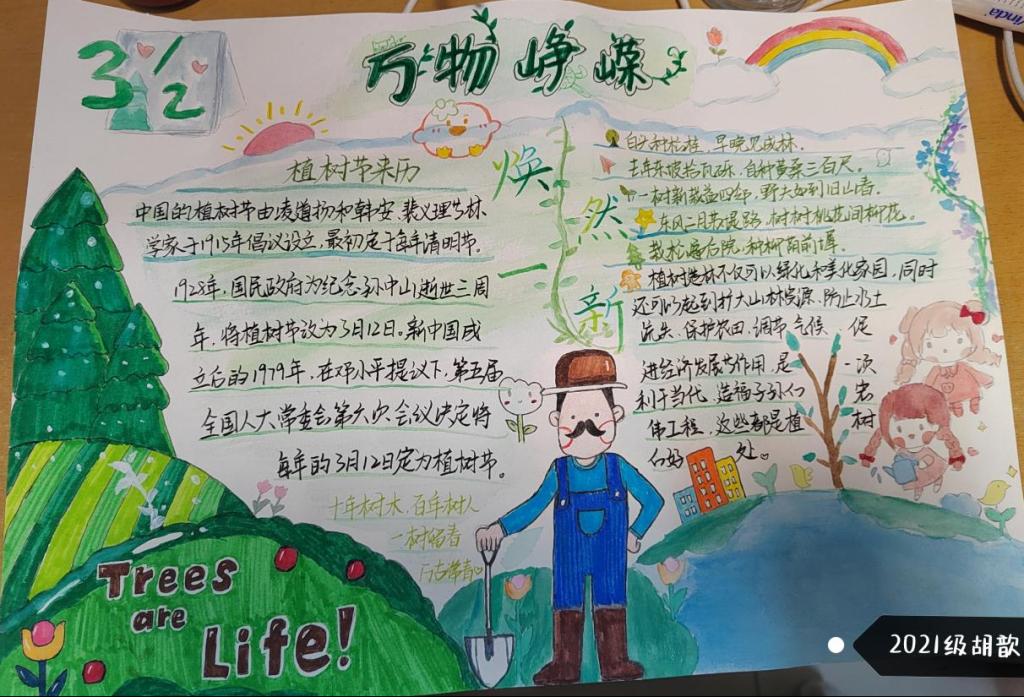 3/12
万物峥嵘
植树节来历
中国的植树节由凌道扬和韩安、裴义理等林
学家于1915年倡议设立,最初定于每年清明节。
1928年,国民政府为纪念孙中山逝世三周
年,将植树节改为3月12日。新中国成
立后的1979年,在邓小平提议下,第五届
全国人大常委会第六次会议决定将
每年的3月12日定为植树节。
十年树木 百年树人
一树留春
万古常青
焕然一新
白头种松桂,早晚见成林。
去年东坡拾瓦砾,自种黄桑三百尺。
一树新栽益四邻,野夫如到旧山春。
东风二月苏堤路,树树桃花间柳花。
栽松遍后院,种柳荫前墀。
植树造林不仅可以绿化和美化家园,同时
还可以起到扩大山林资源、防止水土
流失、保护农田、调节气候、促
进经济发展等作用,是一项
利于当代、造福子孙的宏
伟工程,这些都是植树
的好处。
Trees
are
Life!
2021级胡歆
inda